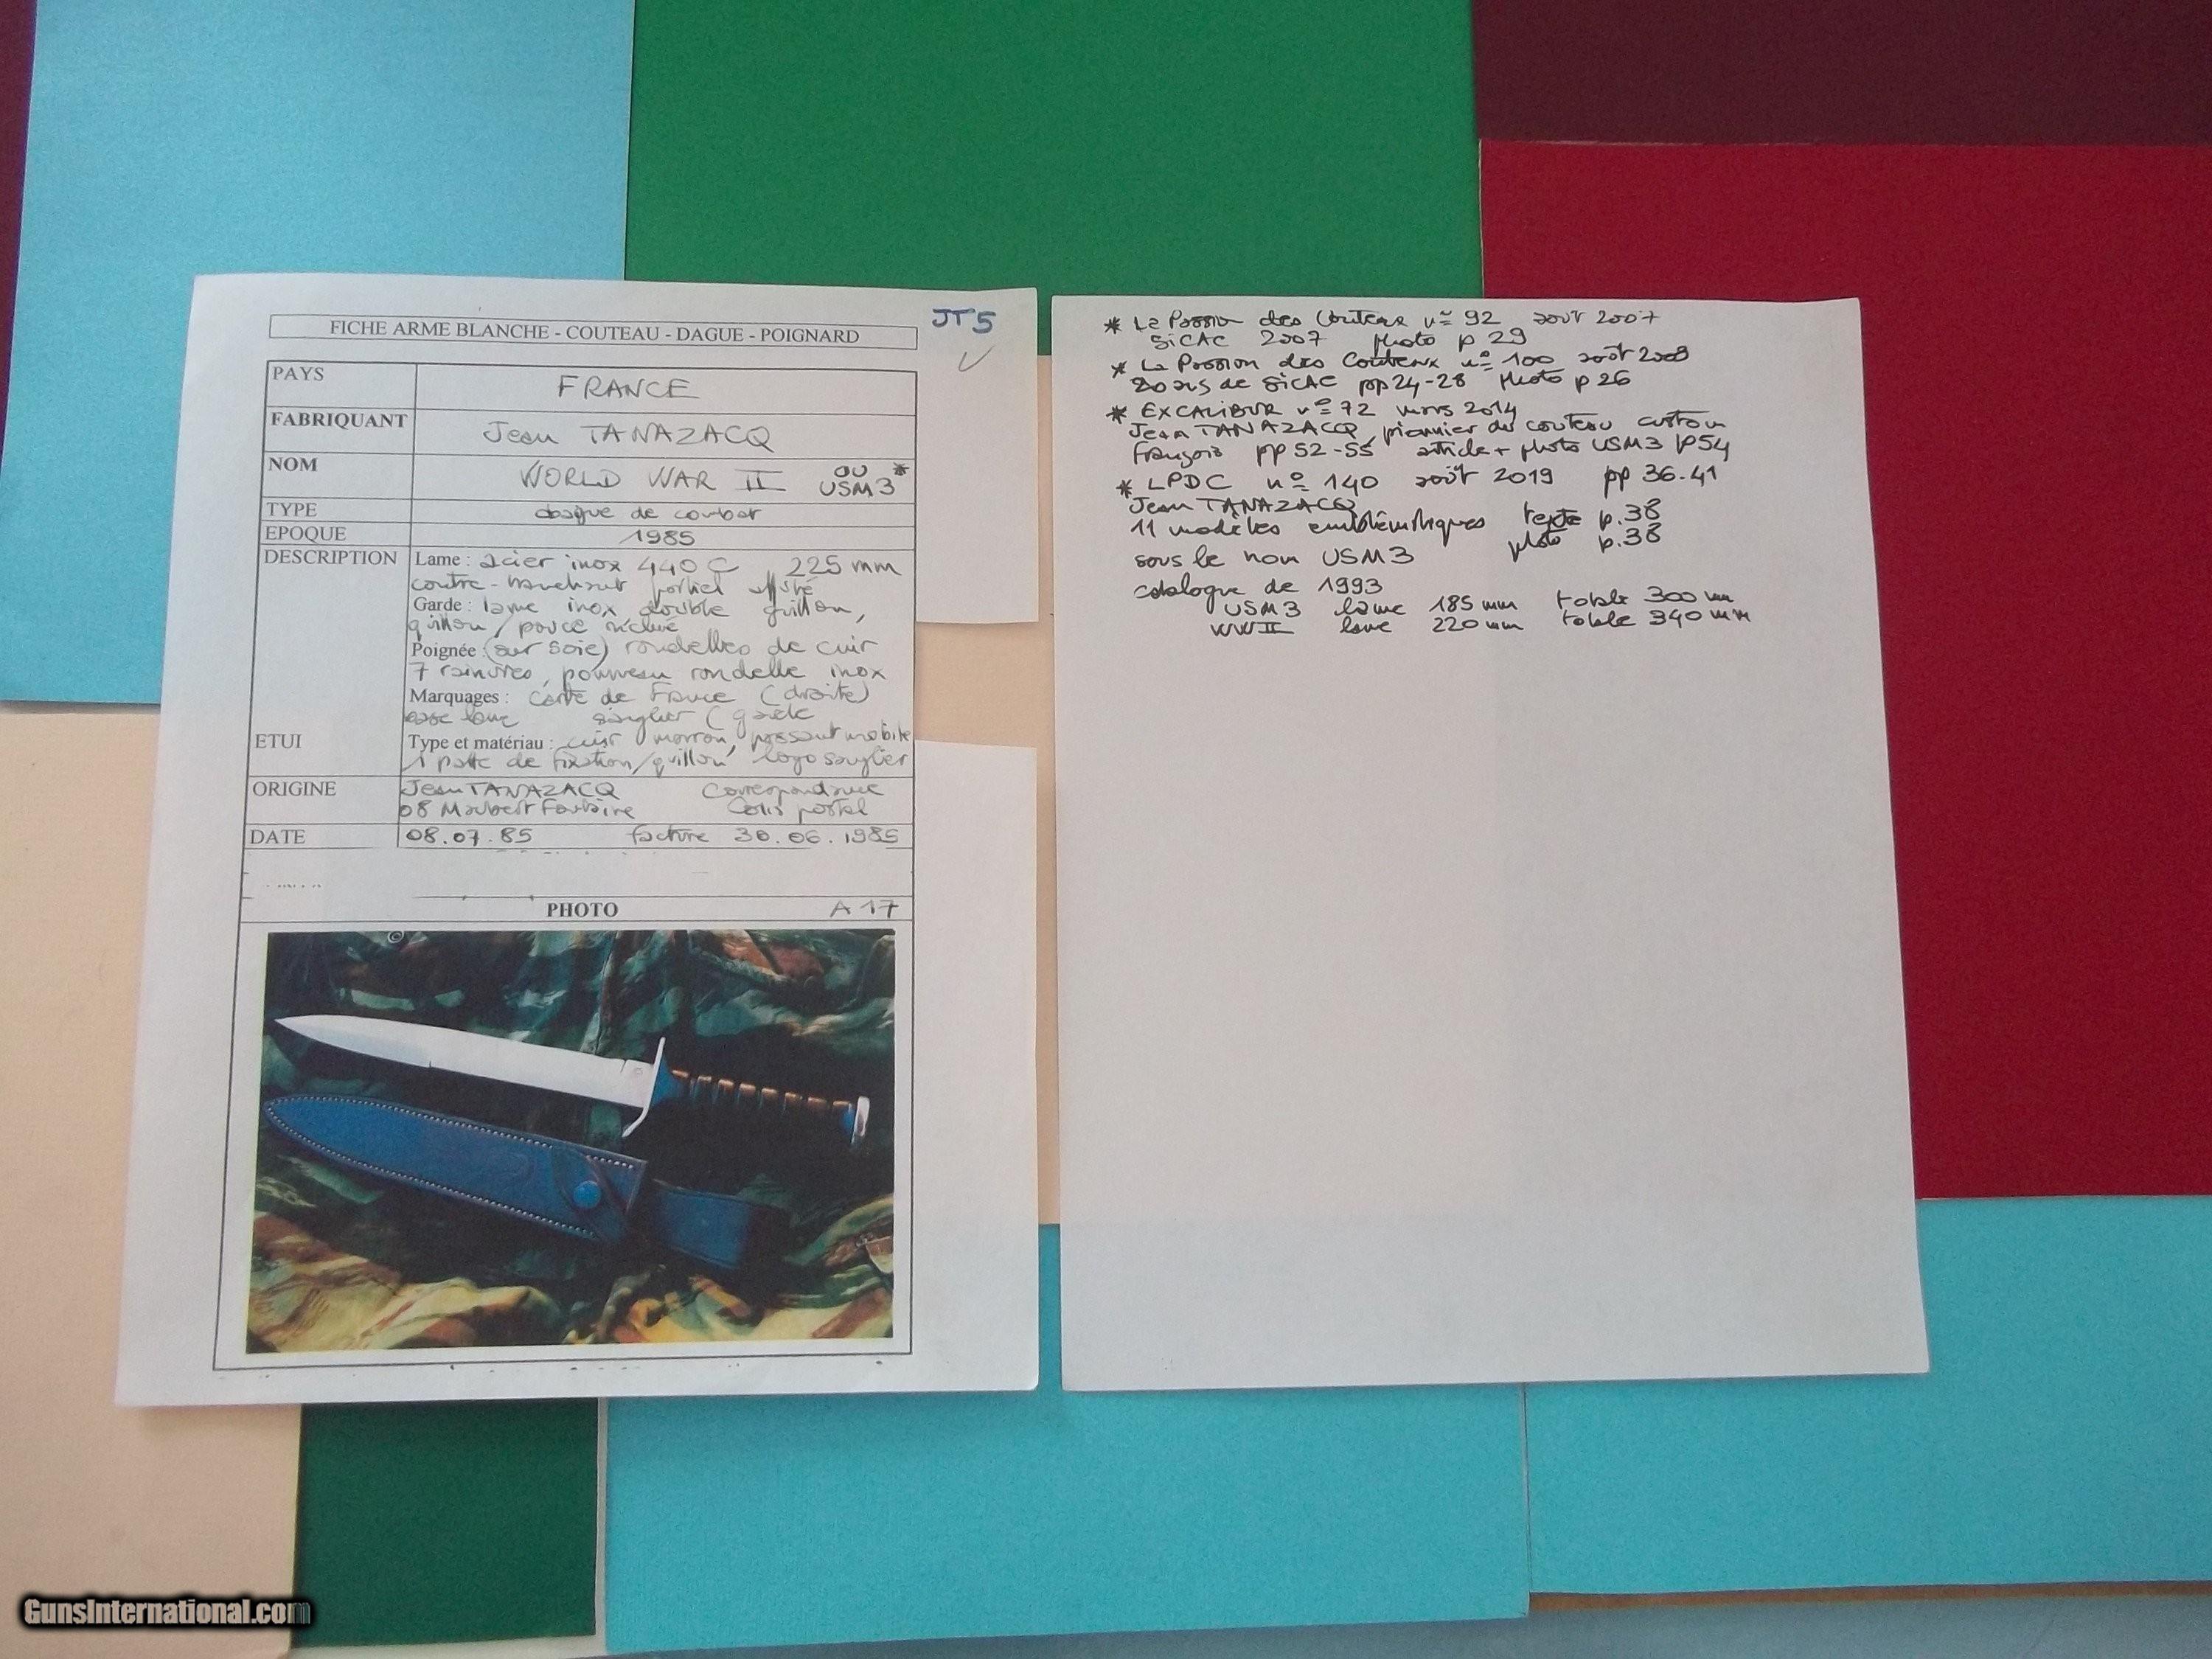 JT5
FICHE ARME BLANCHE - COUTEAU - DAGUE - POIGNARD
PAYS FRANCE
FABRIQUANT Jean TANAZACQ
NOM WORLD WAR II ou USM3 *
TYPE dague de combat
EPOQUE 1985
DESCRIPTION Lame : acier inox 440 C 225 mm
contre-tranchant partiel affûté
Garde : lame inox double quillon,
quillon/pouce incliné
Poignée : (sur soie) rondelles de cuir
7 rainures, pommeau rondelle inox
Marquages : carte de France (droite)
base lame sanglier (gauche
ETUI Type et matériau : cuir marron, passant mobile
1 patte de fixation/quillon logo sanglier
ORIGINE Jean TANAZACQ Correspondance
08 Maubert Fontaine Colis postal
DATE 08.07.85 facture 30.06.1985
PHOTO A 17
©
* La Passion des Couteaux n° 92 août 2007
SICAC 2007 photo p 29
* La Passion des Couteaux n° 100 août 2009
20 ans de SICAC pp 24-28 photo p 26
* EXCALIBUR n° 72 mars 2014
Jean TANAZACQ, pionnier du couteau custom
français pp 52-55 article + photo USM3 p54
* LPDC n° 140 août 2019 pp 36.41
Jean TANAZACQ
11 modèles emblématiques texte p.38
photo p.38
sous le nom USM3
catalogue de 1993
USM3 lame 185 mm totale 300 mm
WWII lame 220 mm totale 340 mm
GunsInternational.com